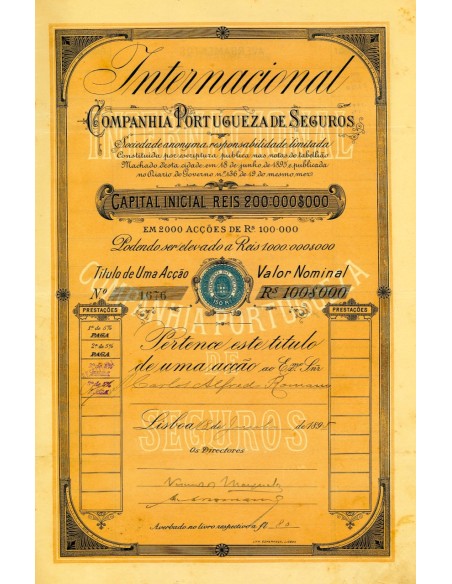 Internacional
COMPANHIA PORTUGUEZA DE SEGUROS
Sociedade anonyma, responsabilidade limitada
Constituida por escriptura publica nas notas do tabellião
Machado desta cidade em 18 de junho de 1895 e publicada
no Diario de Governo nº 136 de 19 do mesmo mez
CAPITAL INICIAL REIS 200:000$000
EM 2000 ACÇÕES DE Rs 100:000
Podendo ser elevado a Reis 1.000:000$000
Titulo de Uma Acção Valor Nominal
Nº 1676 Rs 100$000
INTERNACIONAL
COMPANHIA PORTUGUEZA
DE
SEGUROS
PRESTAÇÕES
PRESTAÇÕES
1ª de 5%
PAGA
2ª de 5%
PAGA
Pertence este titulo
de uma acção ao Exmo Snr
Carlos Alfredo Romano
Lisboa 18 de de 1895
Os Directores
Averbado no livro respectivo a fl 80